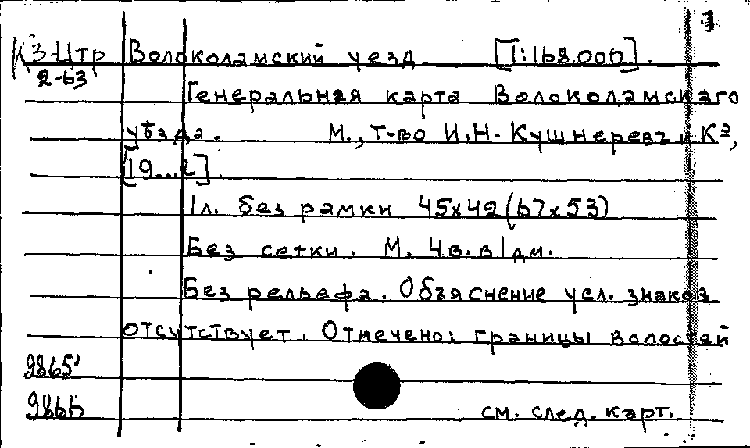 1
К3-Цтр Волоколамский уезд. [1:168.000].
2-63
Генеральная карта Волоколамскаго
уѣзда. М., т-во И.Н. Кушнеревъ и Кº,
[19...г.]
1л. без рамки 45x42 (67x53)
Без сетки. М. 4в. в 1 дм.
Без рельефа. Объяснение усл. знаков
отсутствует. Отмечено: границы волостей
9865
9866
см. след. карт.